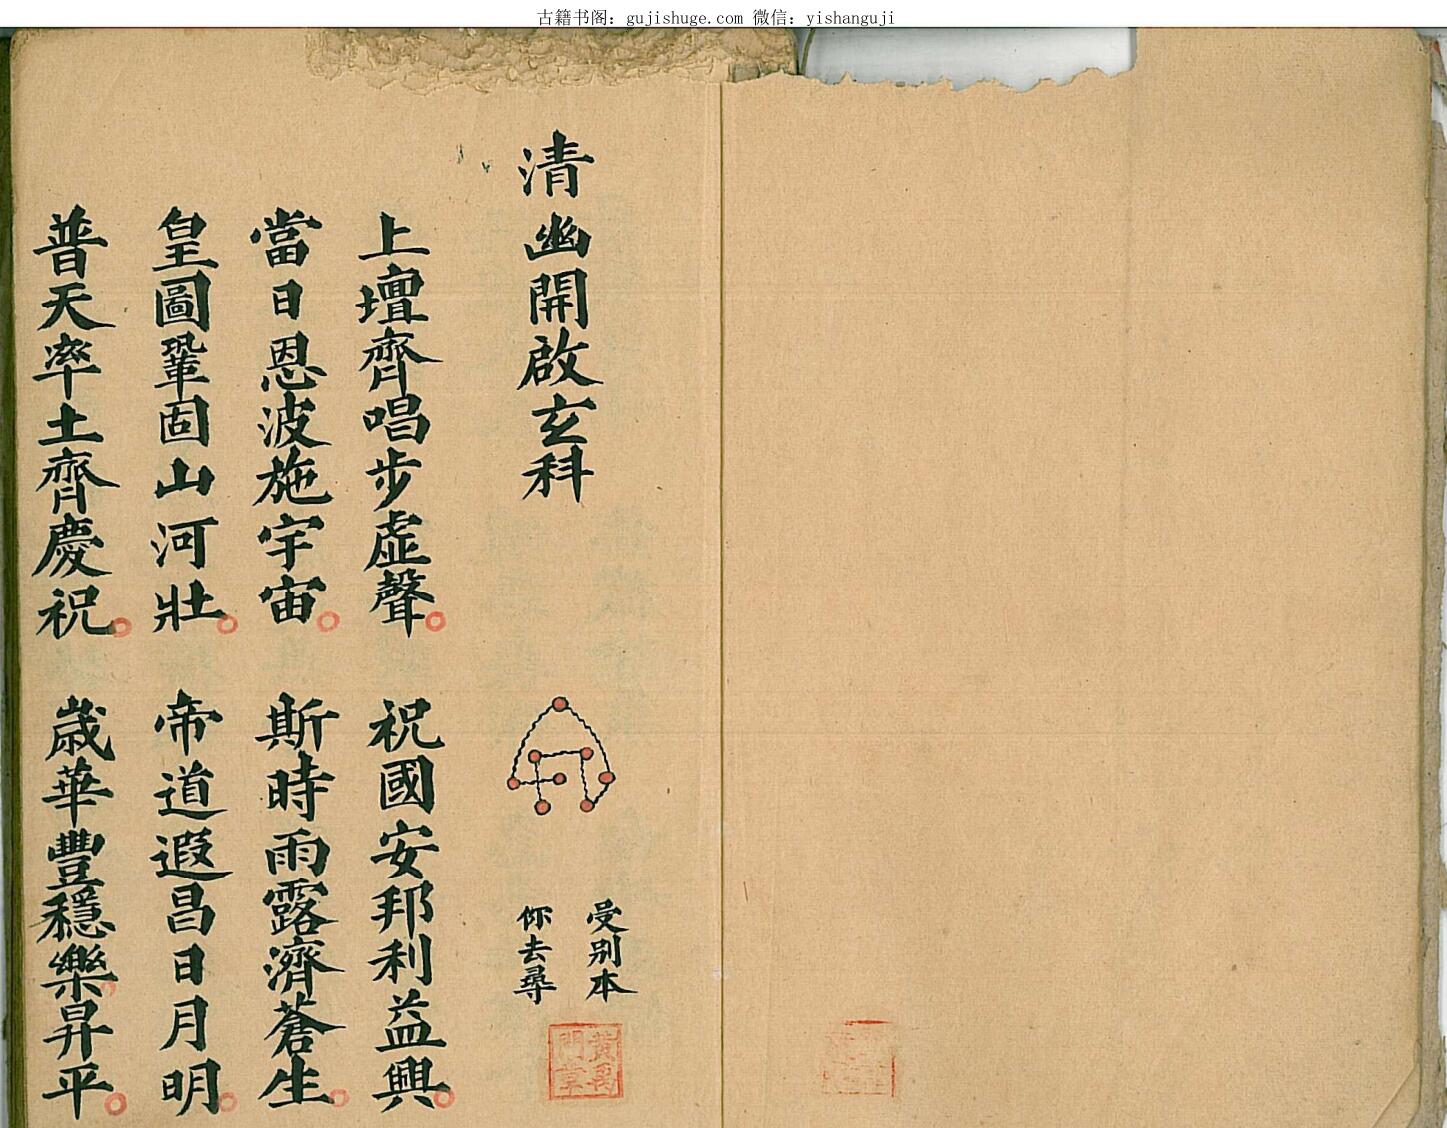 古籍书阁：gujishuge.com 微信：yishanguji
清幽開啟玄科
受別本
你去尋
上壇齊唱步虛聲 祝國安邦利益興
當日恩波施宇宙 斯時雨露濟蒼生
皇圖鞏固山河壯 帝道遐昌日月明
普天率土齊慶祝 歲華豐穩樂昇平